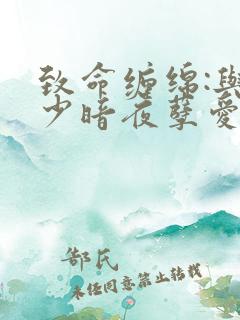 致命缠绵:与
少暗夜孽爱
郜氏
未经同意禁止转载